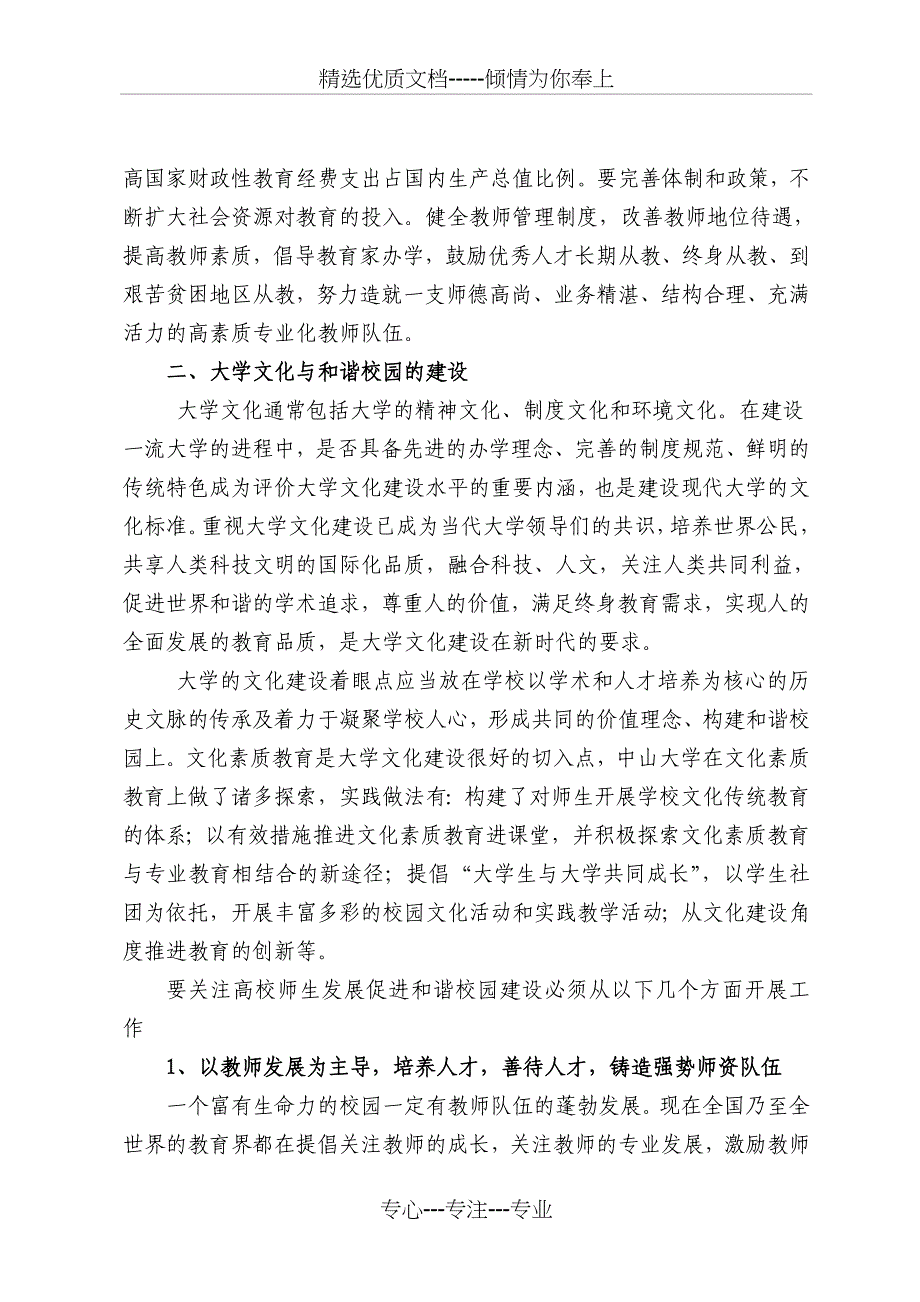 精选优质文档-----倾情为你奉上
高国家财政性教育经费支出占国内生产总值比例。要完善体制和政策，不
断扩大社会资源对教育的投入。健全教师管理制度，改善教师地位待遇，
提高教师素质，倡导教育家办学，鼓励优秀人才长期从教、终身从教、到
艰苦贫困地区从教，努力造就一支师德高尚、业务精湛、结构合理、充满
活力的高素质专业化教师队伍。
二、大学文化与和谐校园的建设
大学文化通常包括大学的精神文化、制度文化和环境文化。在建设
一流大学的进程中，是否具备先进的办学理念、完善的制度规范、鲜明的
传统特色成为评价大学文化建设水平的重要内涵，也是建设现代大学的文
化标准。重视大学文化建设已成为当代大学领导们的共识，培养世界公民，
共享人类科技文明的国际化品质，融合科技、人文，关注人类共同利益，
促进世界和谐的学术追求，尊重人的价值，满足终身教育需求，实现人的
全面发展的教育品质，是大学文化建设在新时代的要求。
大学的文化建设着眼点应当放在学校以学术和人才培养为核心的历
史文脉的传承及着力于凝聚学校人心，形成共同的价值理念、构建和谐校
园上。文化素质教育是大学文化建设很好的切入点，中山大学在文化素质
教育上做了诸多探索，实践做法有：构建了对师生开展学校文化传统教育
的体系；以有效措施推进文化素质教育进课堂，并积极探索文化素质教育
与专业教育相结合的新途径；提倡“大学生与大学共同成长”，以学生社
团为依托，开展丰富多彩的校园文化活动和实践教学活动；从文化建设角
度推进教育的创新等。
要关注高校师生发展促进和谐校园建设必须从以下几个方面开展工
作
1、以教师发展为主导，培养人才，善待人才，铸造强势师资队伍
一个富有生命力的校园一定有教师队伍的蓬勃发展。现在全国乃至全
世界的教育界都在提倡关注教师的成长，关注教师的专业发展，激励教师
专心---专注---专业